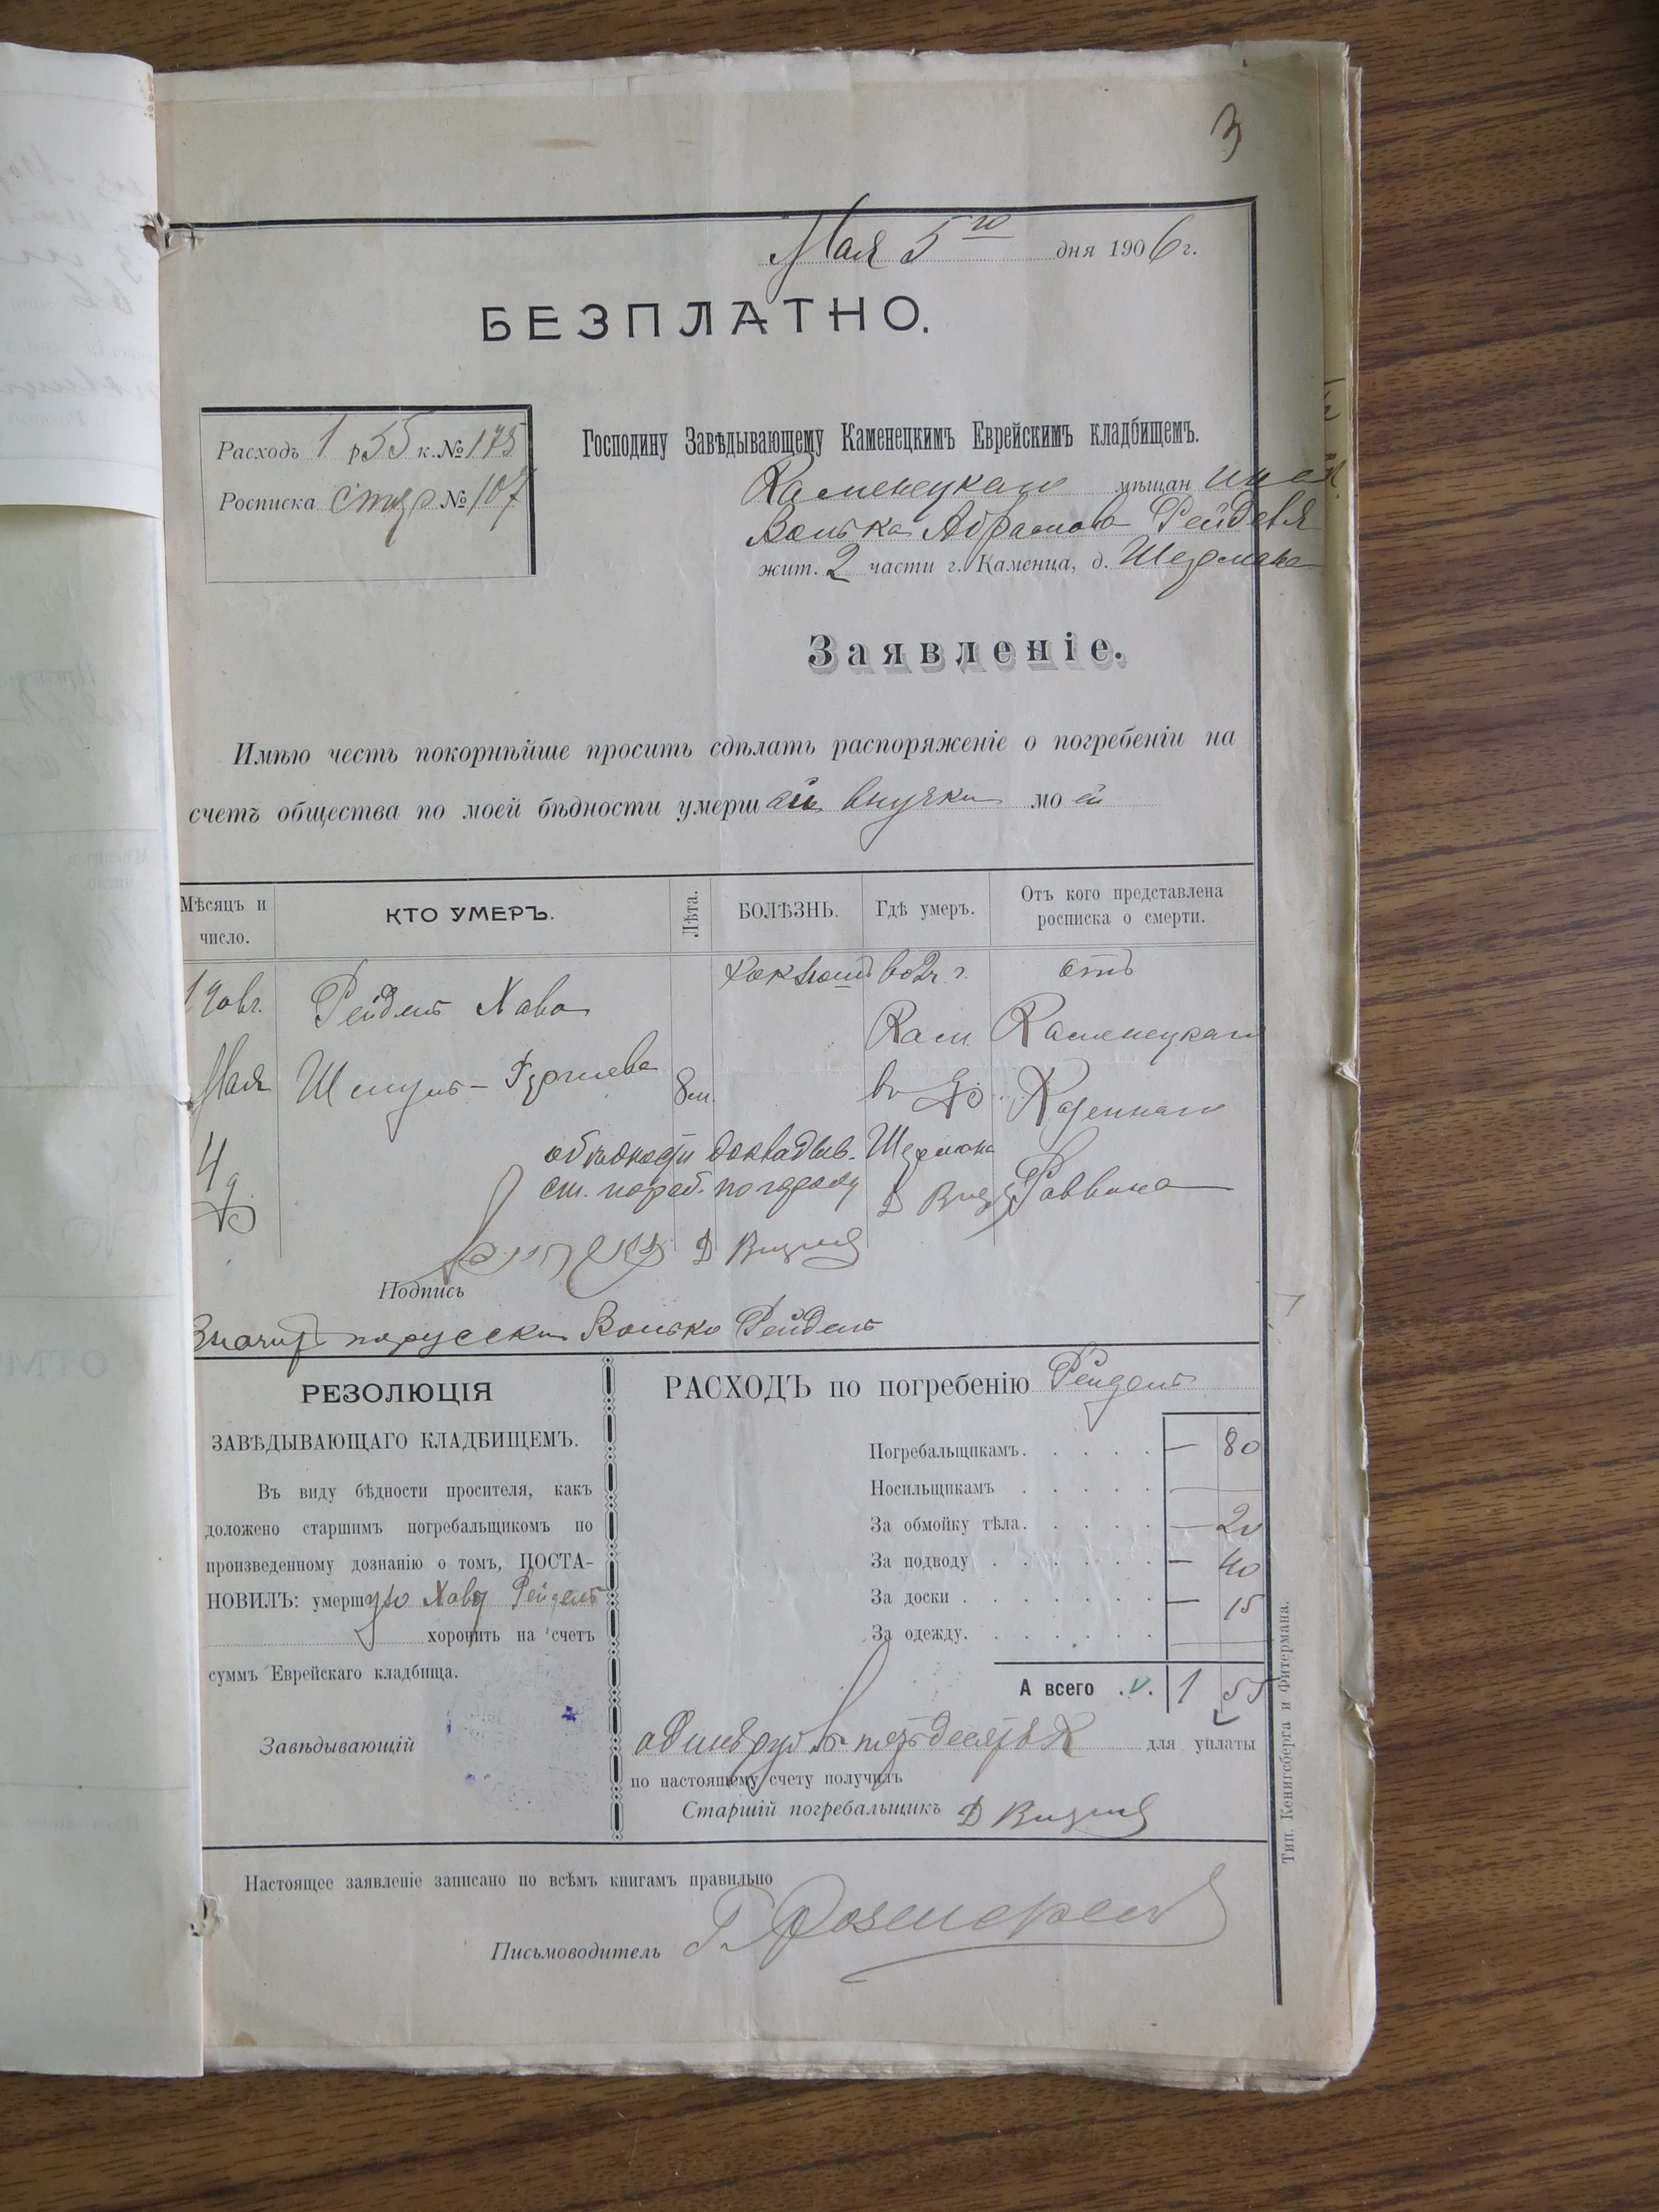 3
Мая 5го дня 1906 г.
БЕЗПЛАТНО.
Расходъ 1 р 55 к. № 175
Росписка № 107
Господину Завѣдывающему Каменецкимъ Еврейскимъ кладбищемъ.
Каменецкаго мѣщанина
Волька Абрамова Рейделя
жит. 2 части г. Каменца, д.
Заявленіе.
Имѣю честь покорнѣйше просить сдѣлать распоряженіе о погребеніи на
счетъ общества по моей бѣдности умершей внучки моей
Мѣсяцъ и число. КТО УМЕРЪ. Лѣта. БОЛѢЗНЬ. Гдѣ умеръ. Отъ кого представлена росписка о смерти.
190 6 г. Рейдель Хава Коклюшъ во 2 ч. г. отъ
Кам. Каменецкаго
Мая Шмуль- 8 м. въ д. Казеннаго
4 д. о бѣдности докладыв. Раввина
ст. погреб. по городу
Д
Подпись
Значитъ порусски Волько Рейдель
РЕЗОЛЮЦІЯ
ЗАВѢДЫВАЮЩАГО КЛАДБИЩЕМЪ.
Въ виду бѣдности просителя, какъ
доложено старшимъ погребальщикомъ по
произведенному дознанію о томъ, ПОСТА-
НОВИЛЪ: умершую Хаву Рейдель
хоронить на счетъ
суммъ Еврейскаго кладбища.
Завѣдывающій
РАСХОДЪ по погребенію Рейдель
Погребальщикамъ. — 80
Носильщикамъ —
За обмойку тѣла. — 20
За подводу — 40
За доски — 15
За одежду. —
А всего 1 55
одинъ руб. для уплаты
по настоящему счету получилъ
Старшій погребальщикъ Д
Настоящее заявленіе записано по всѣмъ книгамъ правильно
Письмоводитель
Тип. Кенигсберга и Фитермана.